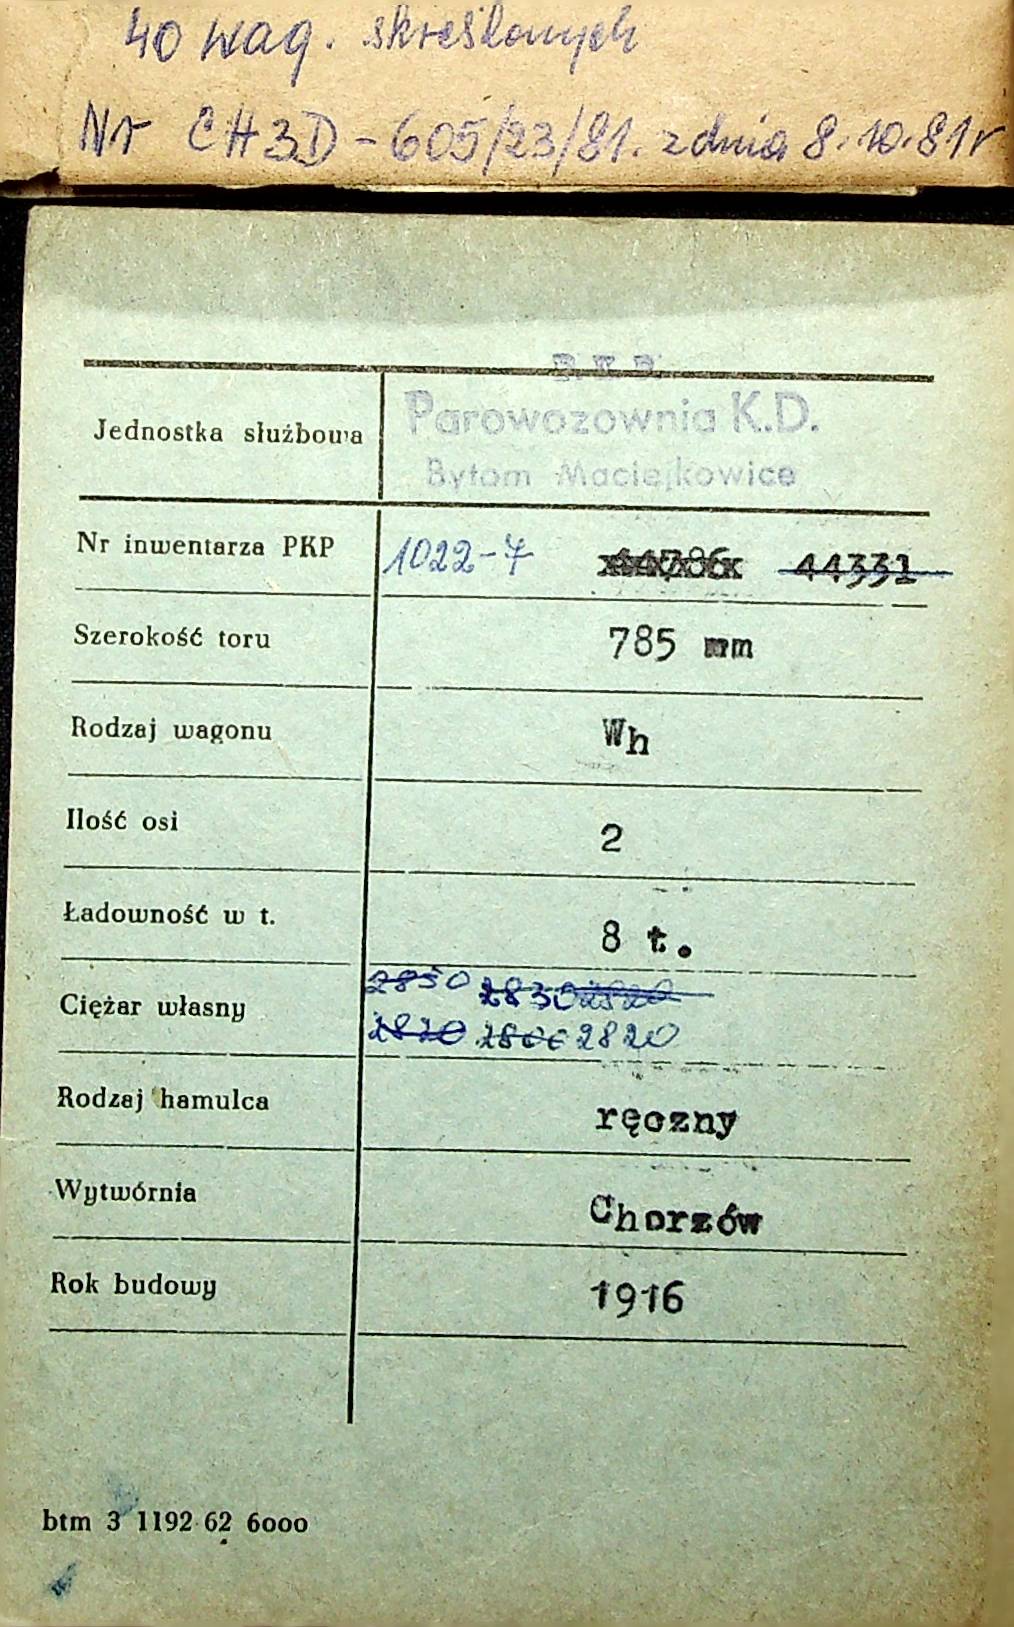 40 wag. skreślonych
Nr CH3D-605/23/81. z dnia 8.10.81r
P.K.P.
Jednostka służbowa Parowozownia K.D.
Bytom Maciejkowice
Nr inwentarza PKP 1022-7 44786 44331
Szerokość toru 785 mm
Rodzaj wagonu Wh
Ilość osi 2
Ładowność w t. 8 t.
2850 2830 2820
Ciężar własny
2820 2800 2820
Rodzaj hamulca ręczny
Wytwórnia Chorzów
Rok budowy 1916
btm 3 1192 62 6000